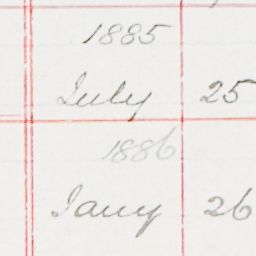 1885
July 25
1886
Jany 26